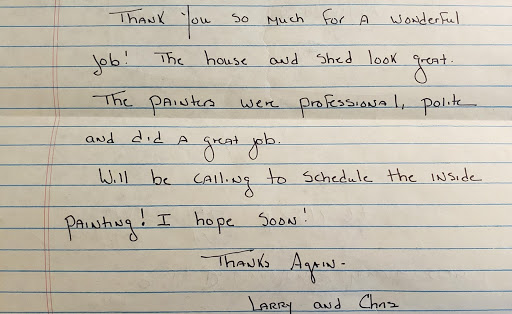 Thank you so much for a wonderful
job! The house and shed look great.
The painters were professional, polite
and did a great job.
Will be calling to schedule the inside
painting! I hope soon!
Thanks Again-
Larry and Chris